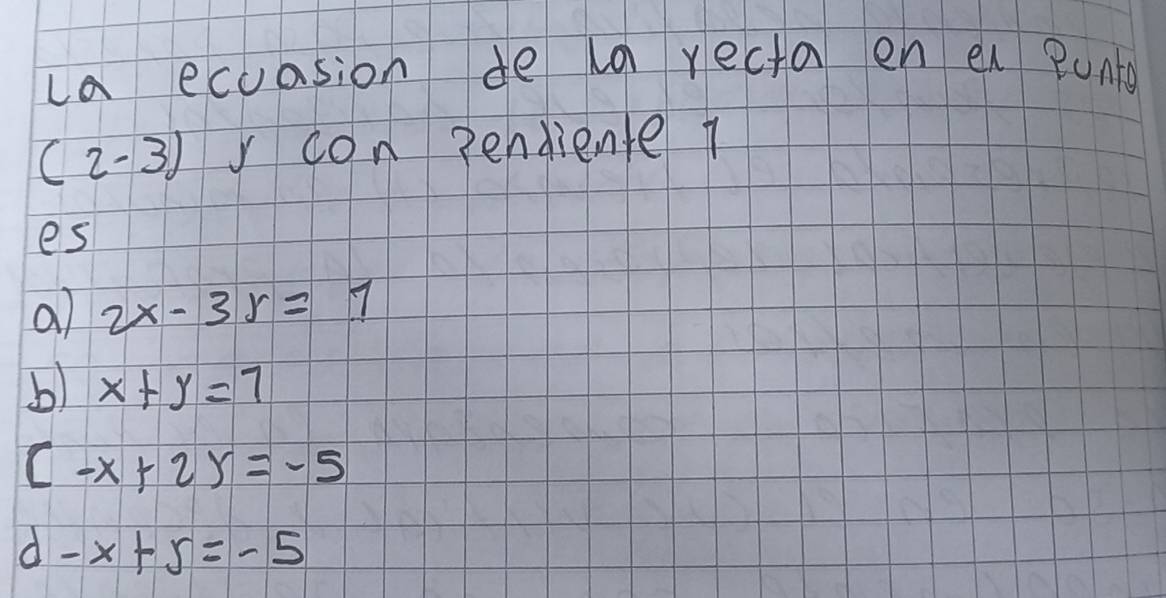 La ecuasion de la recta en el Punto
(2-3) y con Pendiente 1
es
a) 2x-3y=1
b) x+y=1
C -x+2y=-5
d -x+y=-5